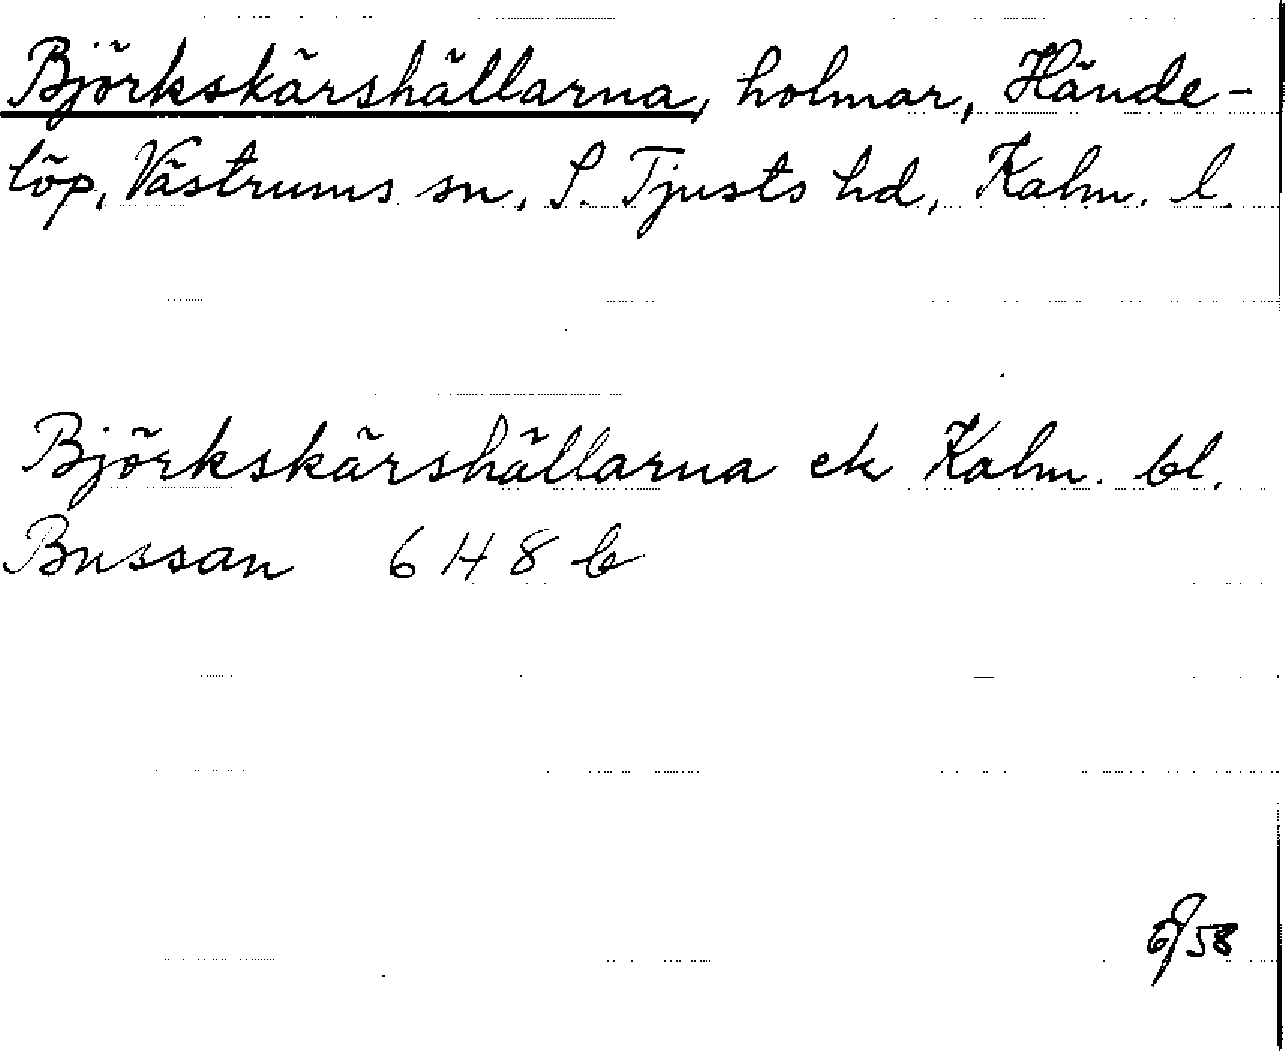 Björkskärshällarna, holmar, Hände-
löp, Västrums sn, S. Tjusts hd, Kalm. l.
Björkskärshällarna ek Kalm. bl.
Bussan 6 H 8 b